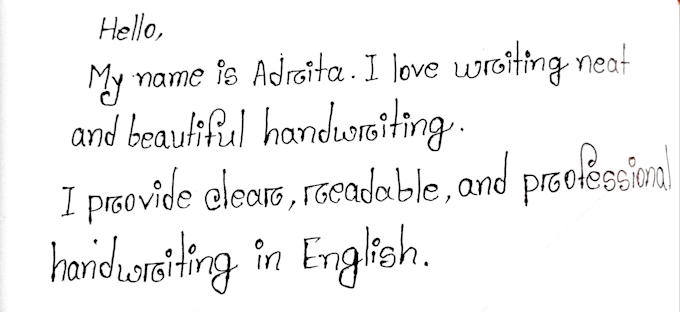 Hello,
My name is Adrita. I love writing neat
and beautiful handwriting.
I provide clear, readable, and professional
handwriting in English.